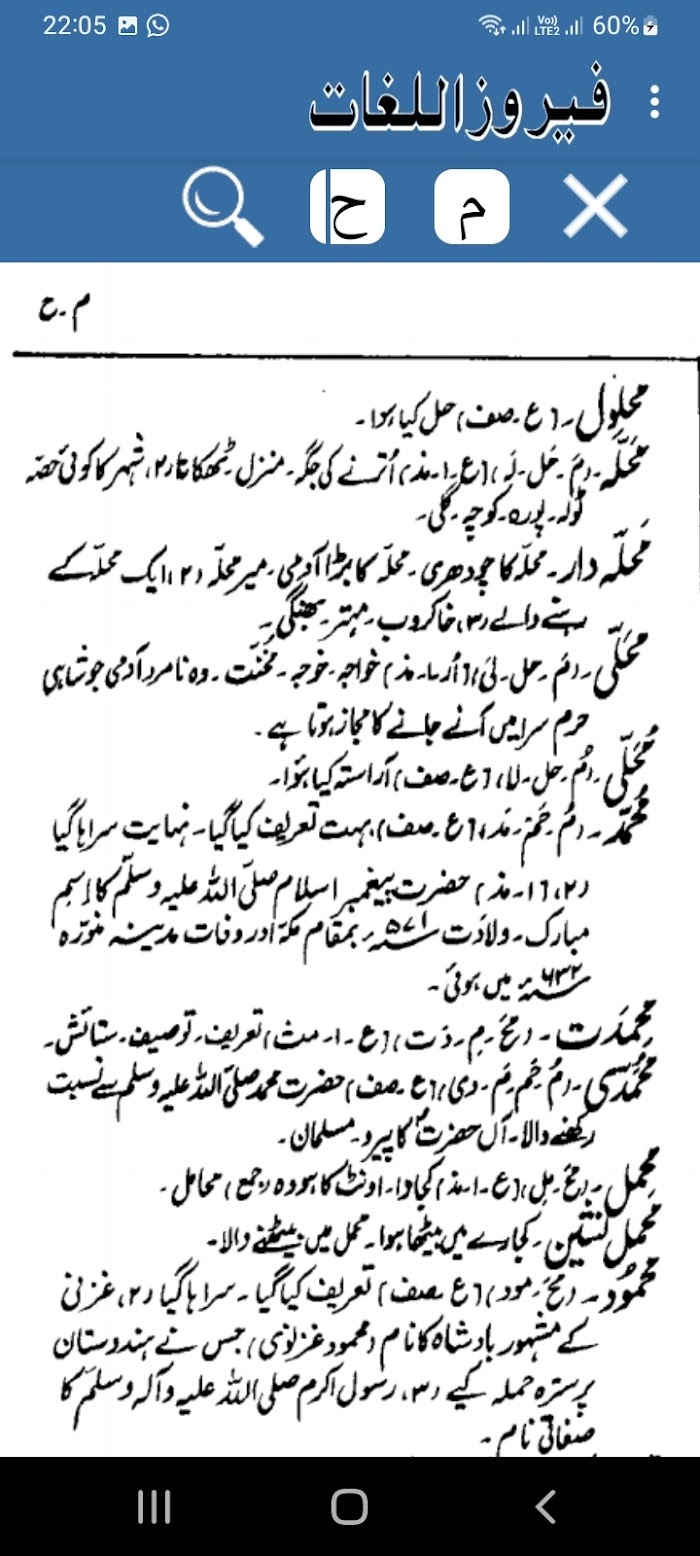 22:05 Vo)) LTE2 60%
فیروزاللغات
ح م
م۔ح
محلول۔ (ع۔صف) حل کیا ہوا۔
محلّہ۔ (مَ۔حَل۔لَہ) (ع۔ا۔مذ) اُترنے کی جگہ۔ منزل ٹھکانا (۲) شہر کا کوئی حصّہ
ٹولہ۔ پورہ۔ کوچہ۔ گلی۔
محلّہ دار۔ محلّہ کا چودھری۔ محلّہ کا بڑا آدمی۔ میر محلّہ (۲) ایک محلّہ کے
بسنے والے (۳) خاکروب۔ مہتر۔ بھنگی۔
محلّی۔ (مَ۔حل۔لی) (اُر۔ا۔مذ) خواجہ۔ خوجہ۔ مخنّت۔ وہ نامرد آدمی جو شاہی
حرم سرا میں آنے جانے کا مجاز ہوتا ہے۔
مُحلّٰی۔ (مُ۔حل۔لا) (ع۔صف) آراستہ کیا ہوا۔
مُحمّد۔ (مُ۔حَم۔مَد) (ع۔صف) بہت تعریف کیا گیا۔ نہایت سراہا گیا
(۲) (ا۔مذ) حضرت پیغمبر اسلام صلی اللہ علیہ وسلم کا اِسم
مبارک۔ ولادت ۵۷۱ء بمقام مکّہ اور وفات مدینہ منوّرہ
۶۳۲ء میں ہوئی۔
محمدت۔ (مَح۔مِ۔دَت) (ع۔ا۔مث) تعریف۔ توصیف۔ ستائش۔
محمّدی۔ (مُ۔حَم۔مَ۔دی) (ع۔صف) حضرت محمد صلی اللہ علیہ وسلم سے نسبت
رکھنے والا۔ آں حضرتؐ کا پیرو۔ مسلمان۔
محمل۔ (مَح۔مِل) (ع۔ا۔مذ) کجاوا۔ اونٹ کا ہودہ (جمع) محامل۔
محمل نشین۔ کجاوے میں بیٹھا ہوا۔ محمل میں بیٹھنے والا۔
محمُود۔ (مَح۔مود) (ع۔صف) تعریف کیا گیا۔ سراہا گیا (۲) غزنی
کے مشہور بادشاہ کا نام (محمود غزنوی) جس نے ہندوستان
پر سترہ حملہ کیے (۳) رسول اکرم صلی اللہ علیہ وآلہ وسلم کا
صفاتی نام۔